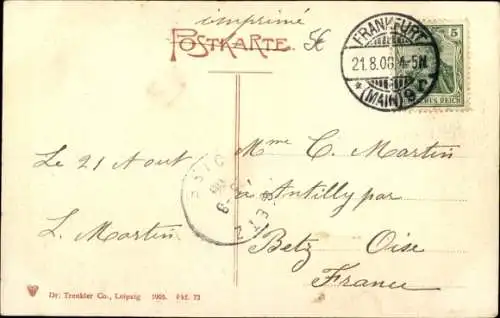 imprimé
POSTKARTE.
FRANKFURT
21.8.06. 4-5N.
* (MAIN) 9
5
REICH
Le 21 Aout
L. Martin
Mme C. Martin
à Antilly par
Betz Oise
France
BETZ
OISE
Dr. Trenkler Co., Leipzig 1905. Fkf. 73